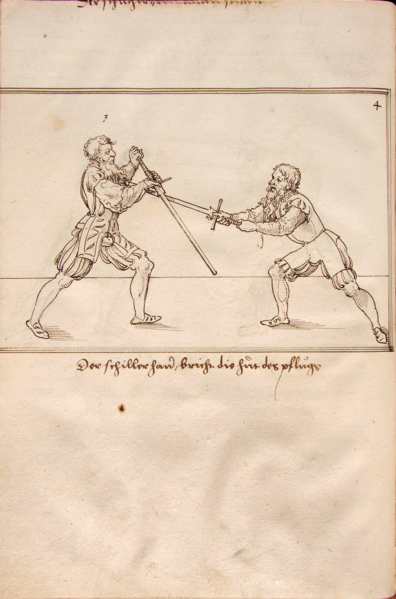 4
3
Der schillerhaw bricht die hůt des pflůgs